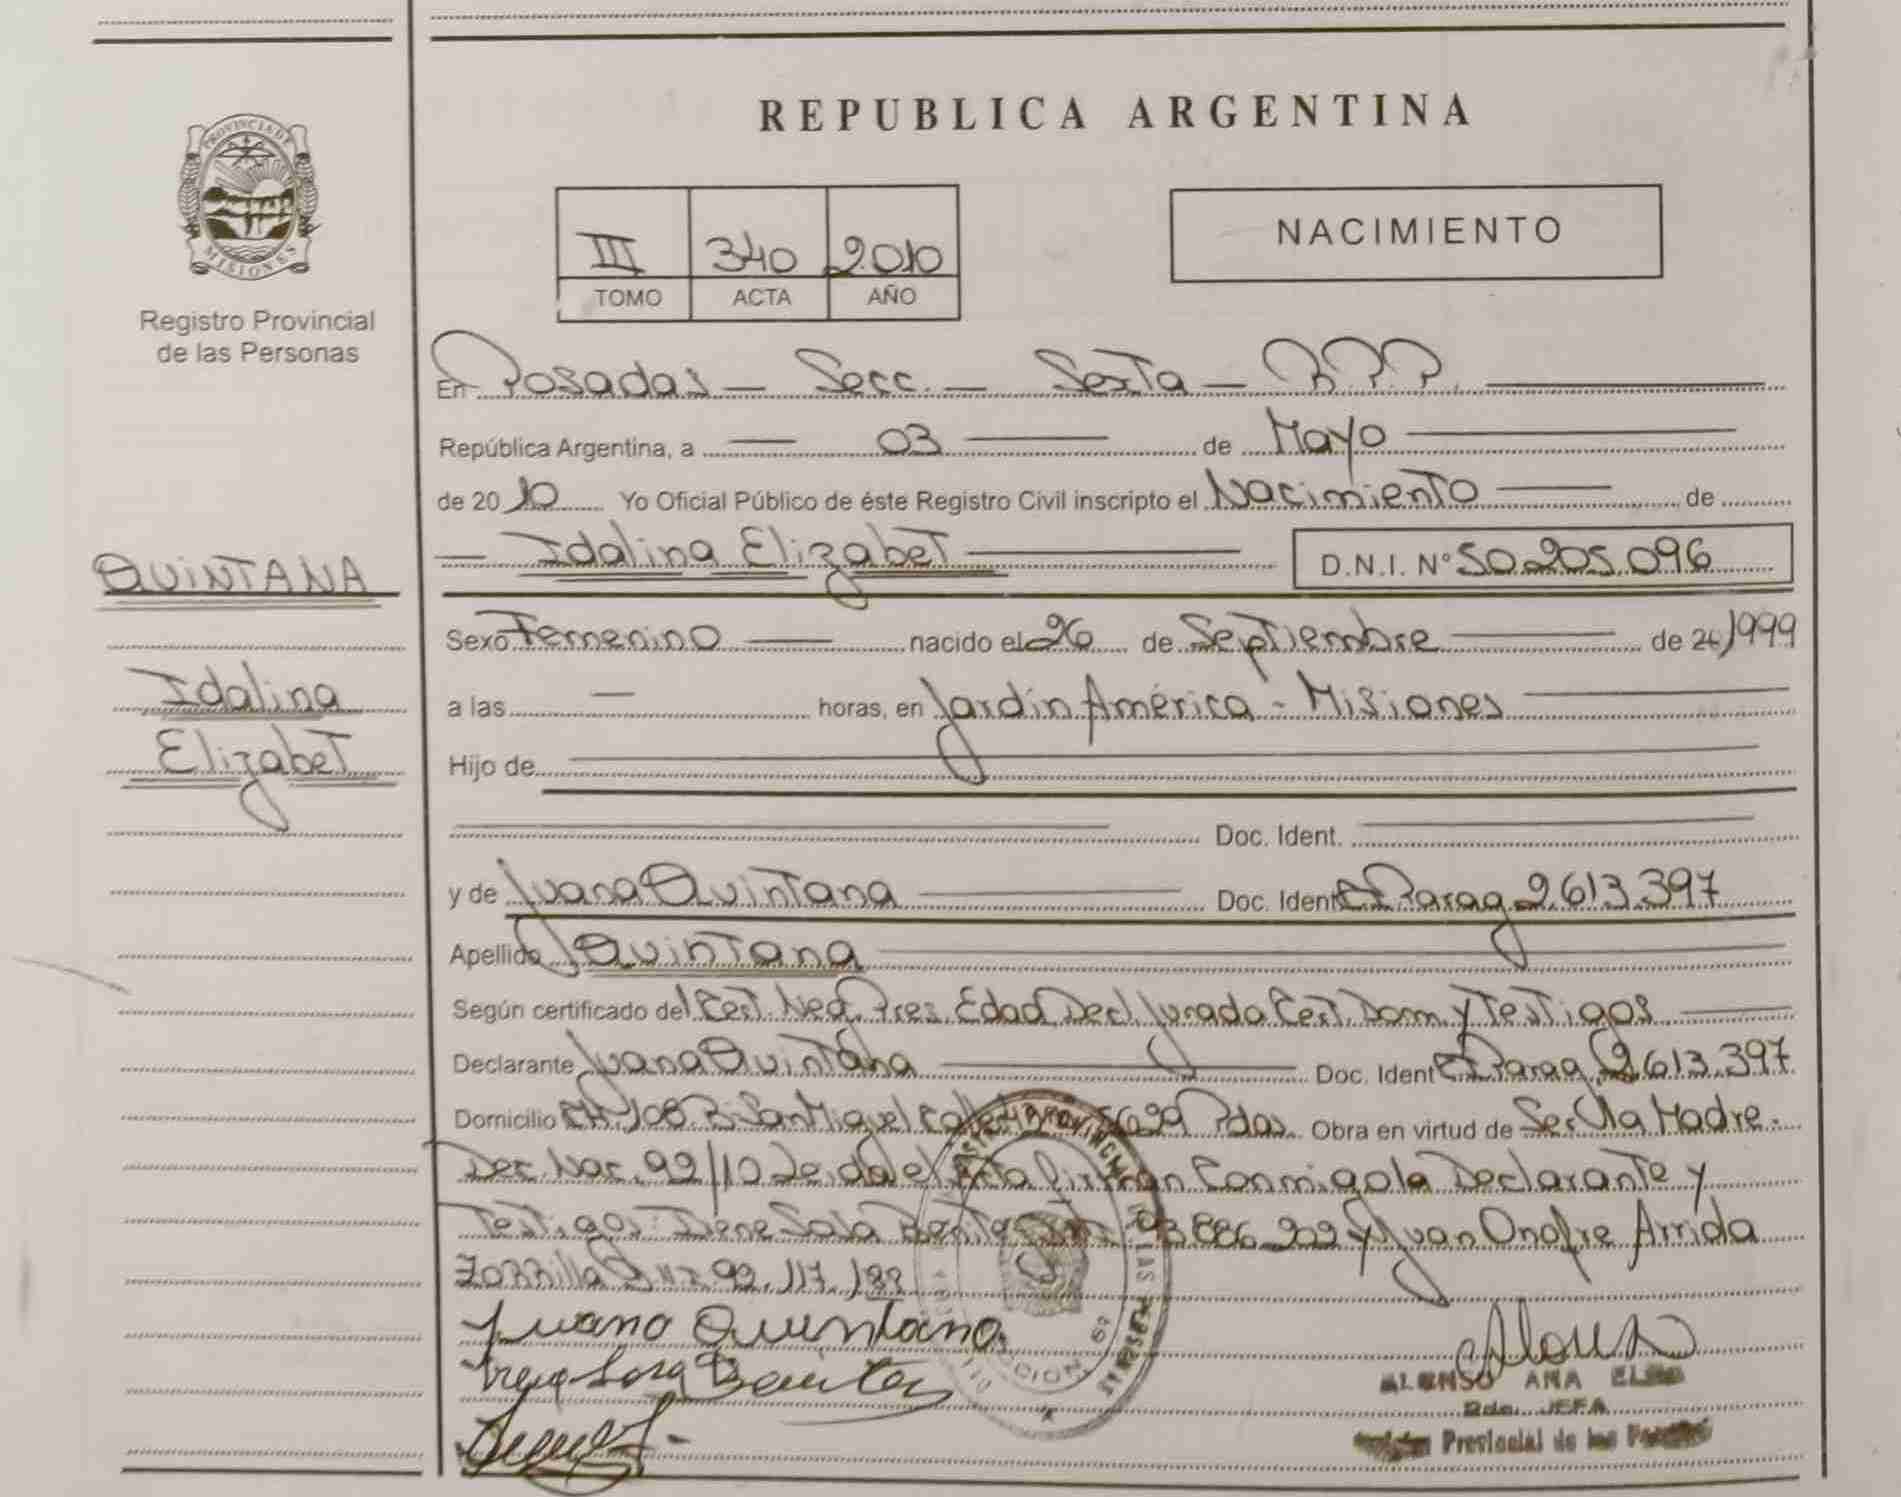 REPUBLICA ARGENTINA
PROVINCIA DE
MISIONES
Registro Provincial
de las Personas
III 340 2010
TOMO ACTA AÑO
NACIMIENTO
En Posadas — Secc. — Sexta — R.P.P.
República Argentina, a — 03 — de Mayo
de 2010 Yo Oficial Público de éste Registro Civil inscripto el Nacimiento — de
— Idalina Elizabet — D.N.I. Nº 50.205.096
QUINTANA
Idalina
Elizabet
Sexo Femenino — nacido el 26 de Septiembre — de 1999
a las — horas, en Jardín América - Misiones
Hijo de
Doc. Ident.
y de Juana Quintana — Doc. Ident. CI Parag 2.613.397
Apellido Quintana
Según certificado del Cert. Neg. Pres. Edad Decl Jurada Cert. Dom y Testigos
Declarante Juana Quintana — Doc. Ident CI Parag. 2.613.397
Domicilio San Miguel Calle Pdas. Obra en virtud de Ser la Madre.
Dec. Nac. 92/10 Leida el Acta firman Conmigo la Declarante y
Testigos: Irene Sosa Benitez y Juan Onofre Arrida
Zorrilla 92.117.188
Juana Quintana
Irene Sosa Benitez
ALONSO ANA
2da. JEFA
Provincial de las